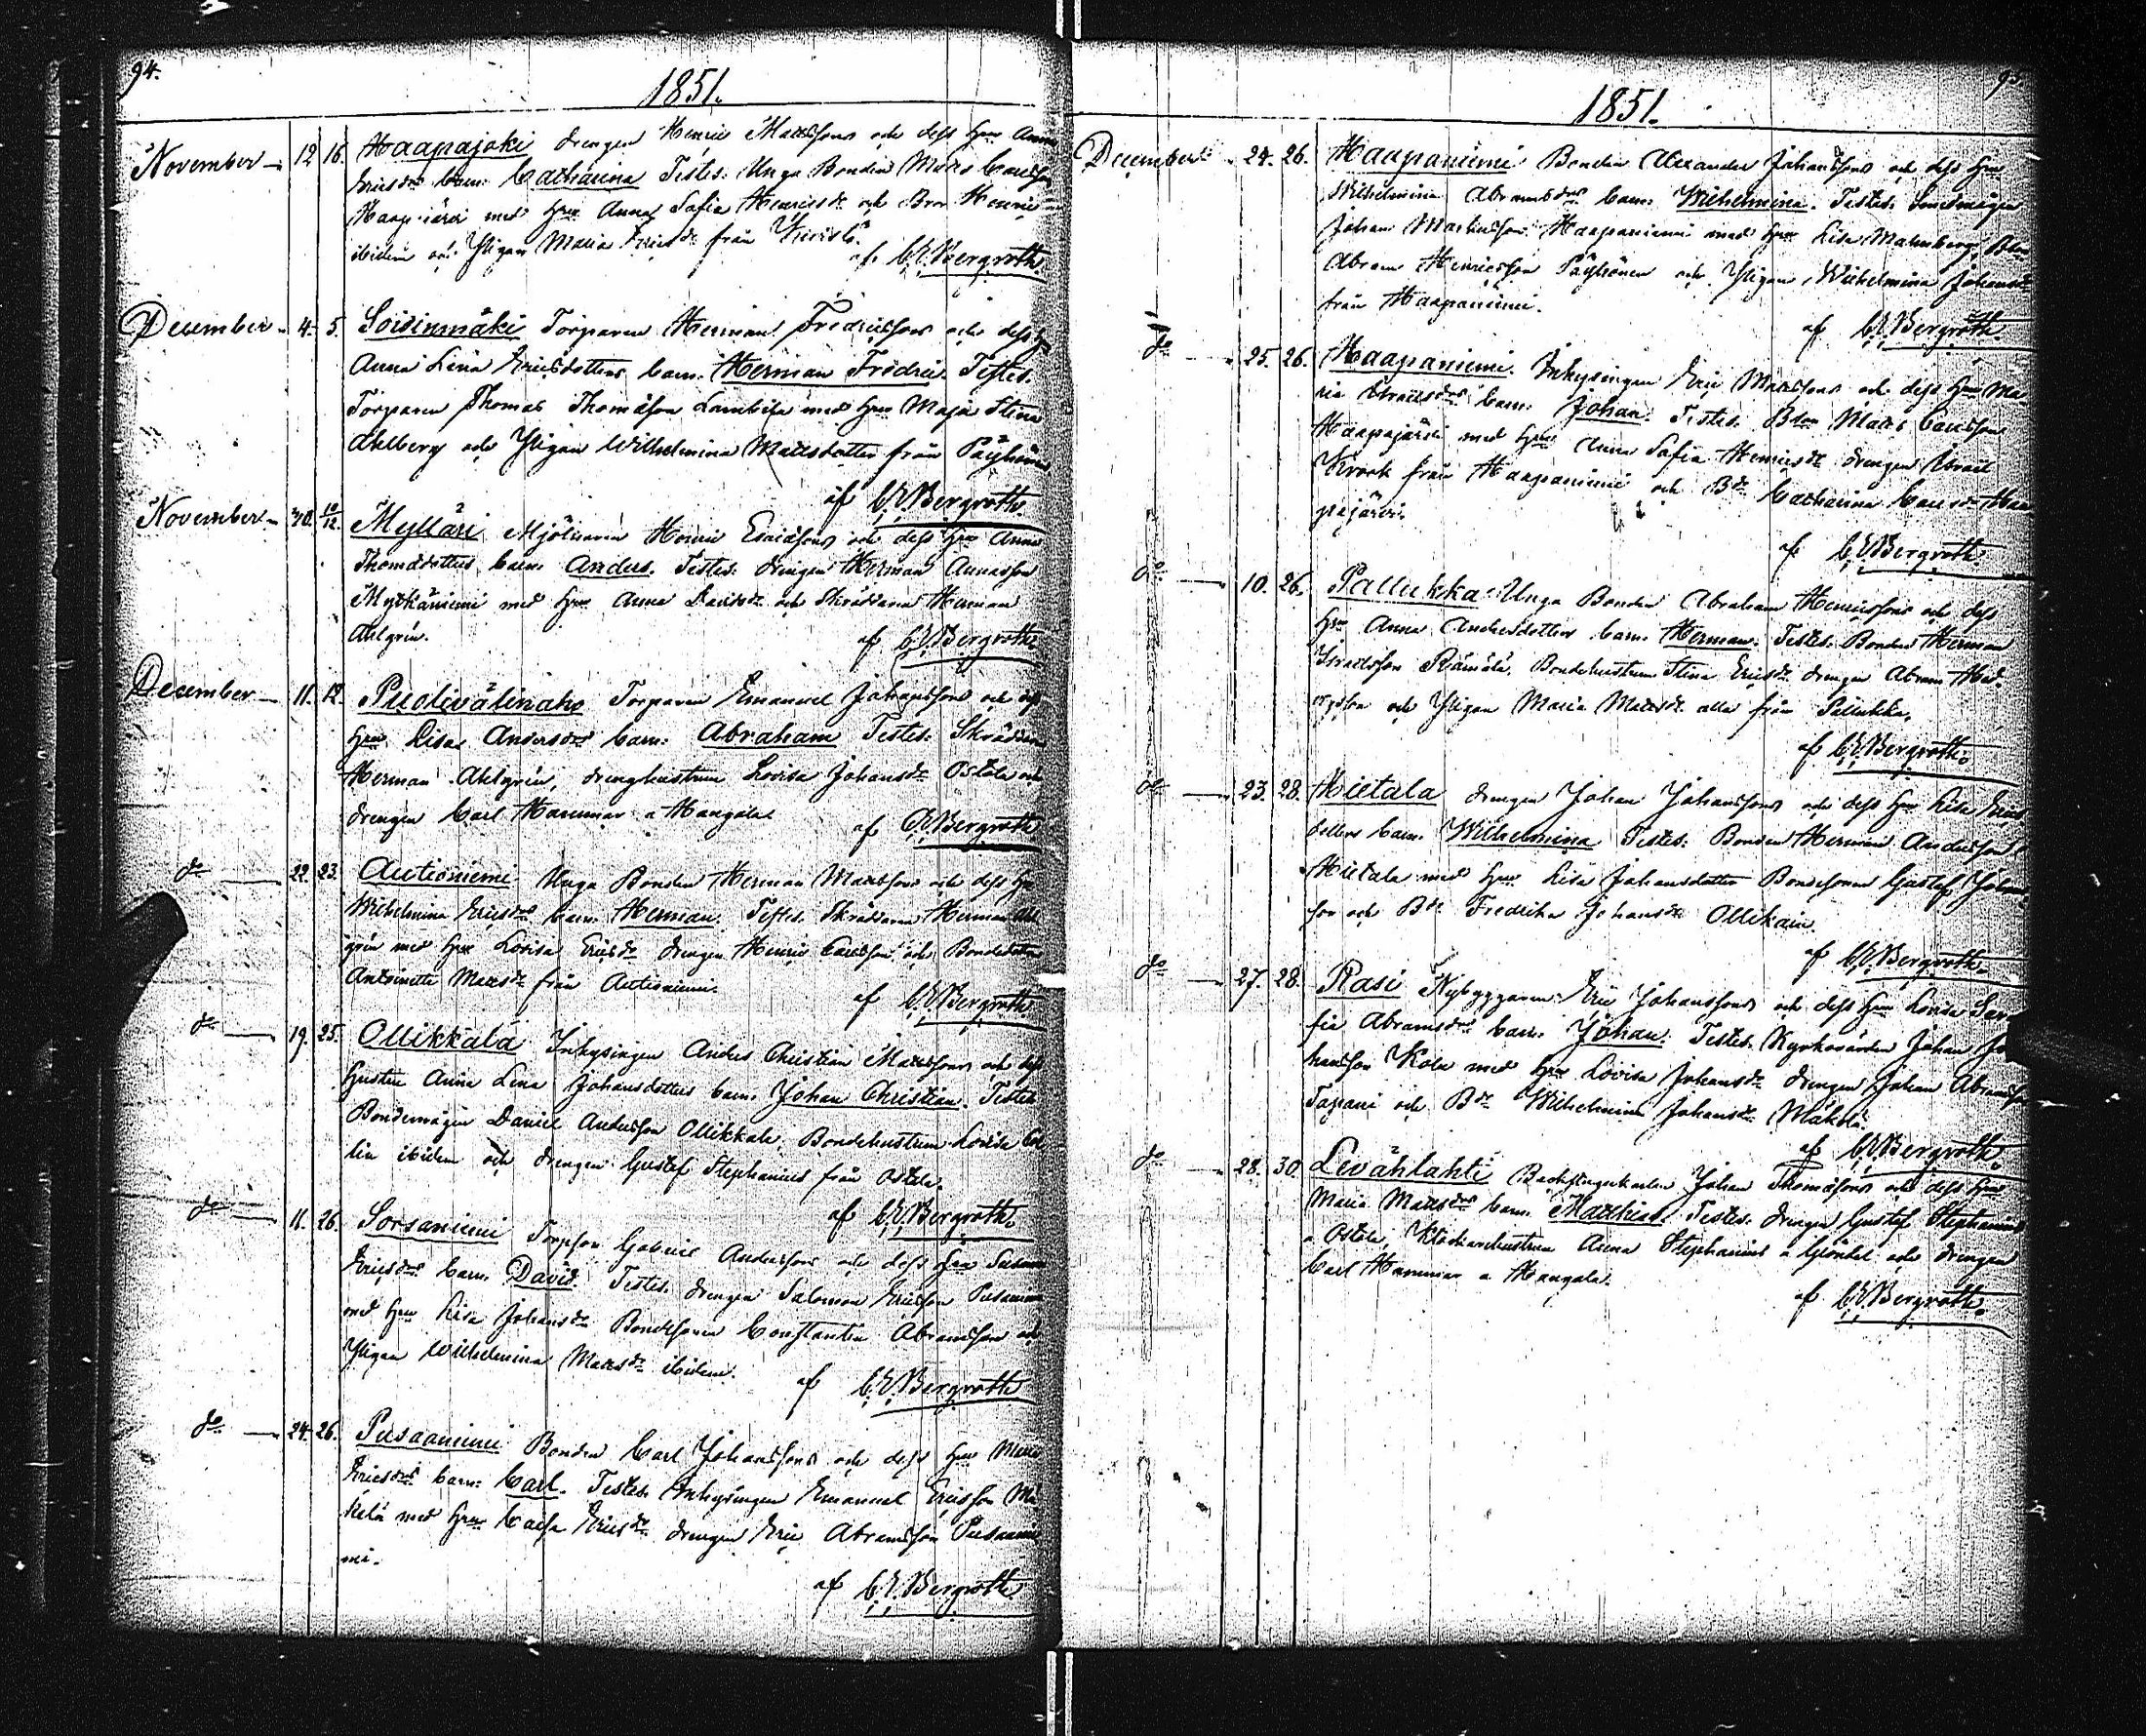 94.
1851.
November 12 16. Haapajoki drengen Henric Mattssons och dess hu Anna
Ericsdrs barn: Catharina Testes: Unga Bonden Matts Carlsson
Haapajärvi med hru Anna Sofia Henricsdr och Bror Henric
ibidem och Pigan Maria Ericsdr från
af C.E. Bergroth.
December 4. 5. Soidinmäki Torparen Herman Fredricssons och dess h
Anna Lena Ericsdotters barn: Herman Fredric. Testes.
Torparen Thomas Thomasson med hru Maja Stina
Ahlberg och Pigan Wilhelmina Mattsdotter från Päyhönen
af C.E. Bergroth.
November 30. 10/12. Mylläri Mjölnaren Henric Esaiassons och dess hru Anna
Thomasdotters barn: Anders. Testes: drengen Herman Annasson
Myckäniemi med hru Anna Davidsdr och Skräddaren Herman
Ahlgrén. af C.E. Bergroth.
December 11. 12. Puolivälinaho Torparen Emanuel Johanssons och dess
hru Lisa Andersdrs barn: Abraham Testes: Skräddaren
Herman Ahlgrén, drenghustrun Lovisa Johansdr Ostola och
drengen Carl Hammar a Hangala.
af C.E. Bergroth
do 22. 23. Autioniemi Unga Bonden Herman Mattssons och dess hu
Wilhelmina Ericsdrs barn: Herman. Testes. Skräddaren Herman Ahl
grén med hru Lovisa Ericsdr drengen Henric Carlsson och Bondedottern
Antoinetta Mattsdr från Autioniemi.
af C.E. Bergroth
do 19. 25. Ollikkala Inhysingen Anders Christian Mattssons och dess
hustru Anna Lena Johansdotters barn: Johan Christian. Testes
Bondemågen Daniel Andersson Ollikkala, Bondehustrun Lovisa
lin ibidem och drengen Gustaf Stephanius från Ostola.
af C.E. Bergroth.
do 11. 26. Sorsaniemi Torpson Gabriel Anderssons och dess hru Susanna
Ericsdrs barn: David. Testes. drengen Salomon Ericsson Pusaniemi
med hru Lisa Johansdr Bondesonen Constantin Abramsson och
Pigan Wilhelmina Mattsdr ibidem.
af C.E. Bergroth
do 24. 26. Pusaaniemi Bonden Carl Johanssons och dess hru Maria
Ericsdrs barn: Carl. Testes. Inhysingen Emanuel Ericsson Mä
kelä med hru Caisa Ericsdr drengen Eric Abramsson Pusaanie
mi.
af C.E. Bergroth
95
1851.
December 24. 26. Haapaniemi Bonden Alexander Johanssons och dess hru
Wilhelmina Abramsdrs barn: Wilhelmina. Testes. Smedmågen
Johan Markusson Haapaniemi med hru Lisa Malmberg,
Abram Henricsson Päyhönen och Pigan Wilhelmina Johansdr
från Haapaniemi.
af C.E. Bergroth
do 25. 26. Haapaniemi. Inhysingen Eric Mattssons och dess hru Ma-
ria Israelsdrs barn: Johan. Testes. Bdn Matts Carlsson
Haapajärvi med hru Anna Sofia Henricsdr drengen Israel
Krook från Haapaniemi och Bdr Catharina Carlsdr Haa
pajärvi.
af C.E. Bergroth.
do 10. 26. Pallukka. Unga Bonden Abraham Henricssons och dess
hru Anna Andersdotters barn: Herman. Testes. Bonden Herman
Israelsson Rämälä, Bondehustrun Stina Ericsdr drengen Abram
och Pigan Maria Mattsdr alla från Pallukka.
af C.E. Bergroth.
do 23. 28. Hietala drengen Johan Johanssons och dess hru Lisa Erics
dotters barn: Wilhelmina Testes: Bonden Herman Andersson
Hietala med hru Lisa Johansdotter Bondesonen Gustaf Johans
son och Bdr Fredrika Johansdr Ollikain.
af C.E. Bergroth.
do 27. 28. Rasi Nybyggaren Eric Johanssons och dess hru Lovisa
fia Abramsdrs barn: Johan. Testes. Kyrkovärden Johan Jo
hansson Kola med hru Lovisa Johansdr drengen Johan Abramsson
Tapani och Bdr Wilhelmina Johansdr Mäkelä.
af C.E. Bergroth.
do 28. 30. Levählahti Backstugukarlen Johan Thomassons och dess hru
Maria Mattsdrs barn: Matthias. Testes. drengen Gustaf Stephanius
a Ostola, Klockarehustrun Anna Stephanius a och drengen
Carl Hammar a Hangala.
af C.E. Bergroth.